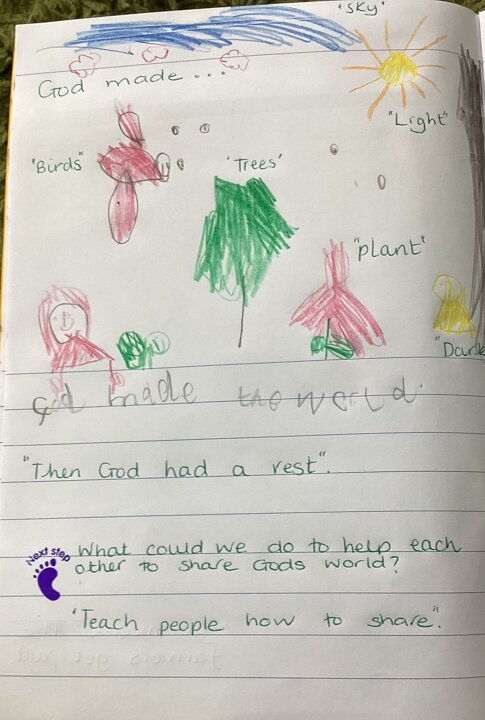 "Sky"
God made ...
"Light"
"Birds"
'Trees'
"plant"
God made the world.
"Then God had a rest".
Next step
What could we do to help each
other to share Gods world?
"Teach people how to share".